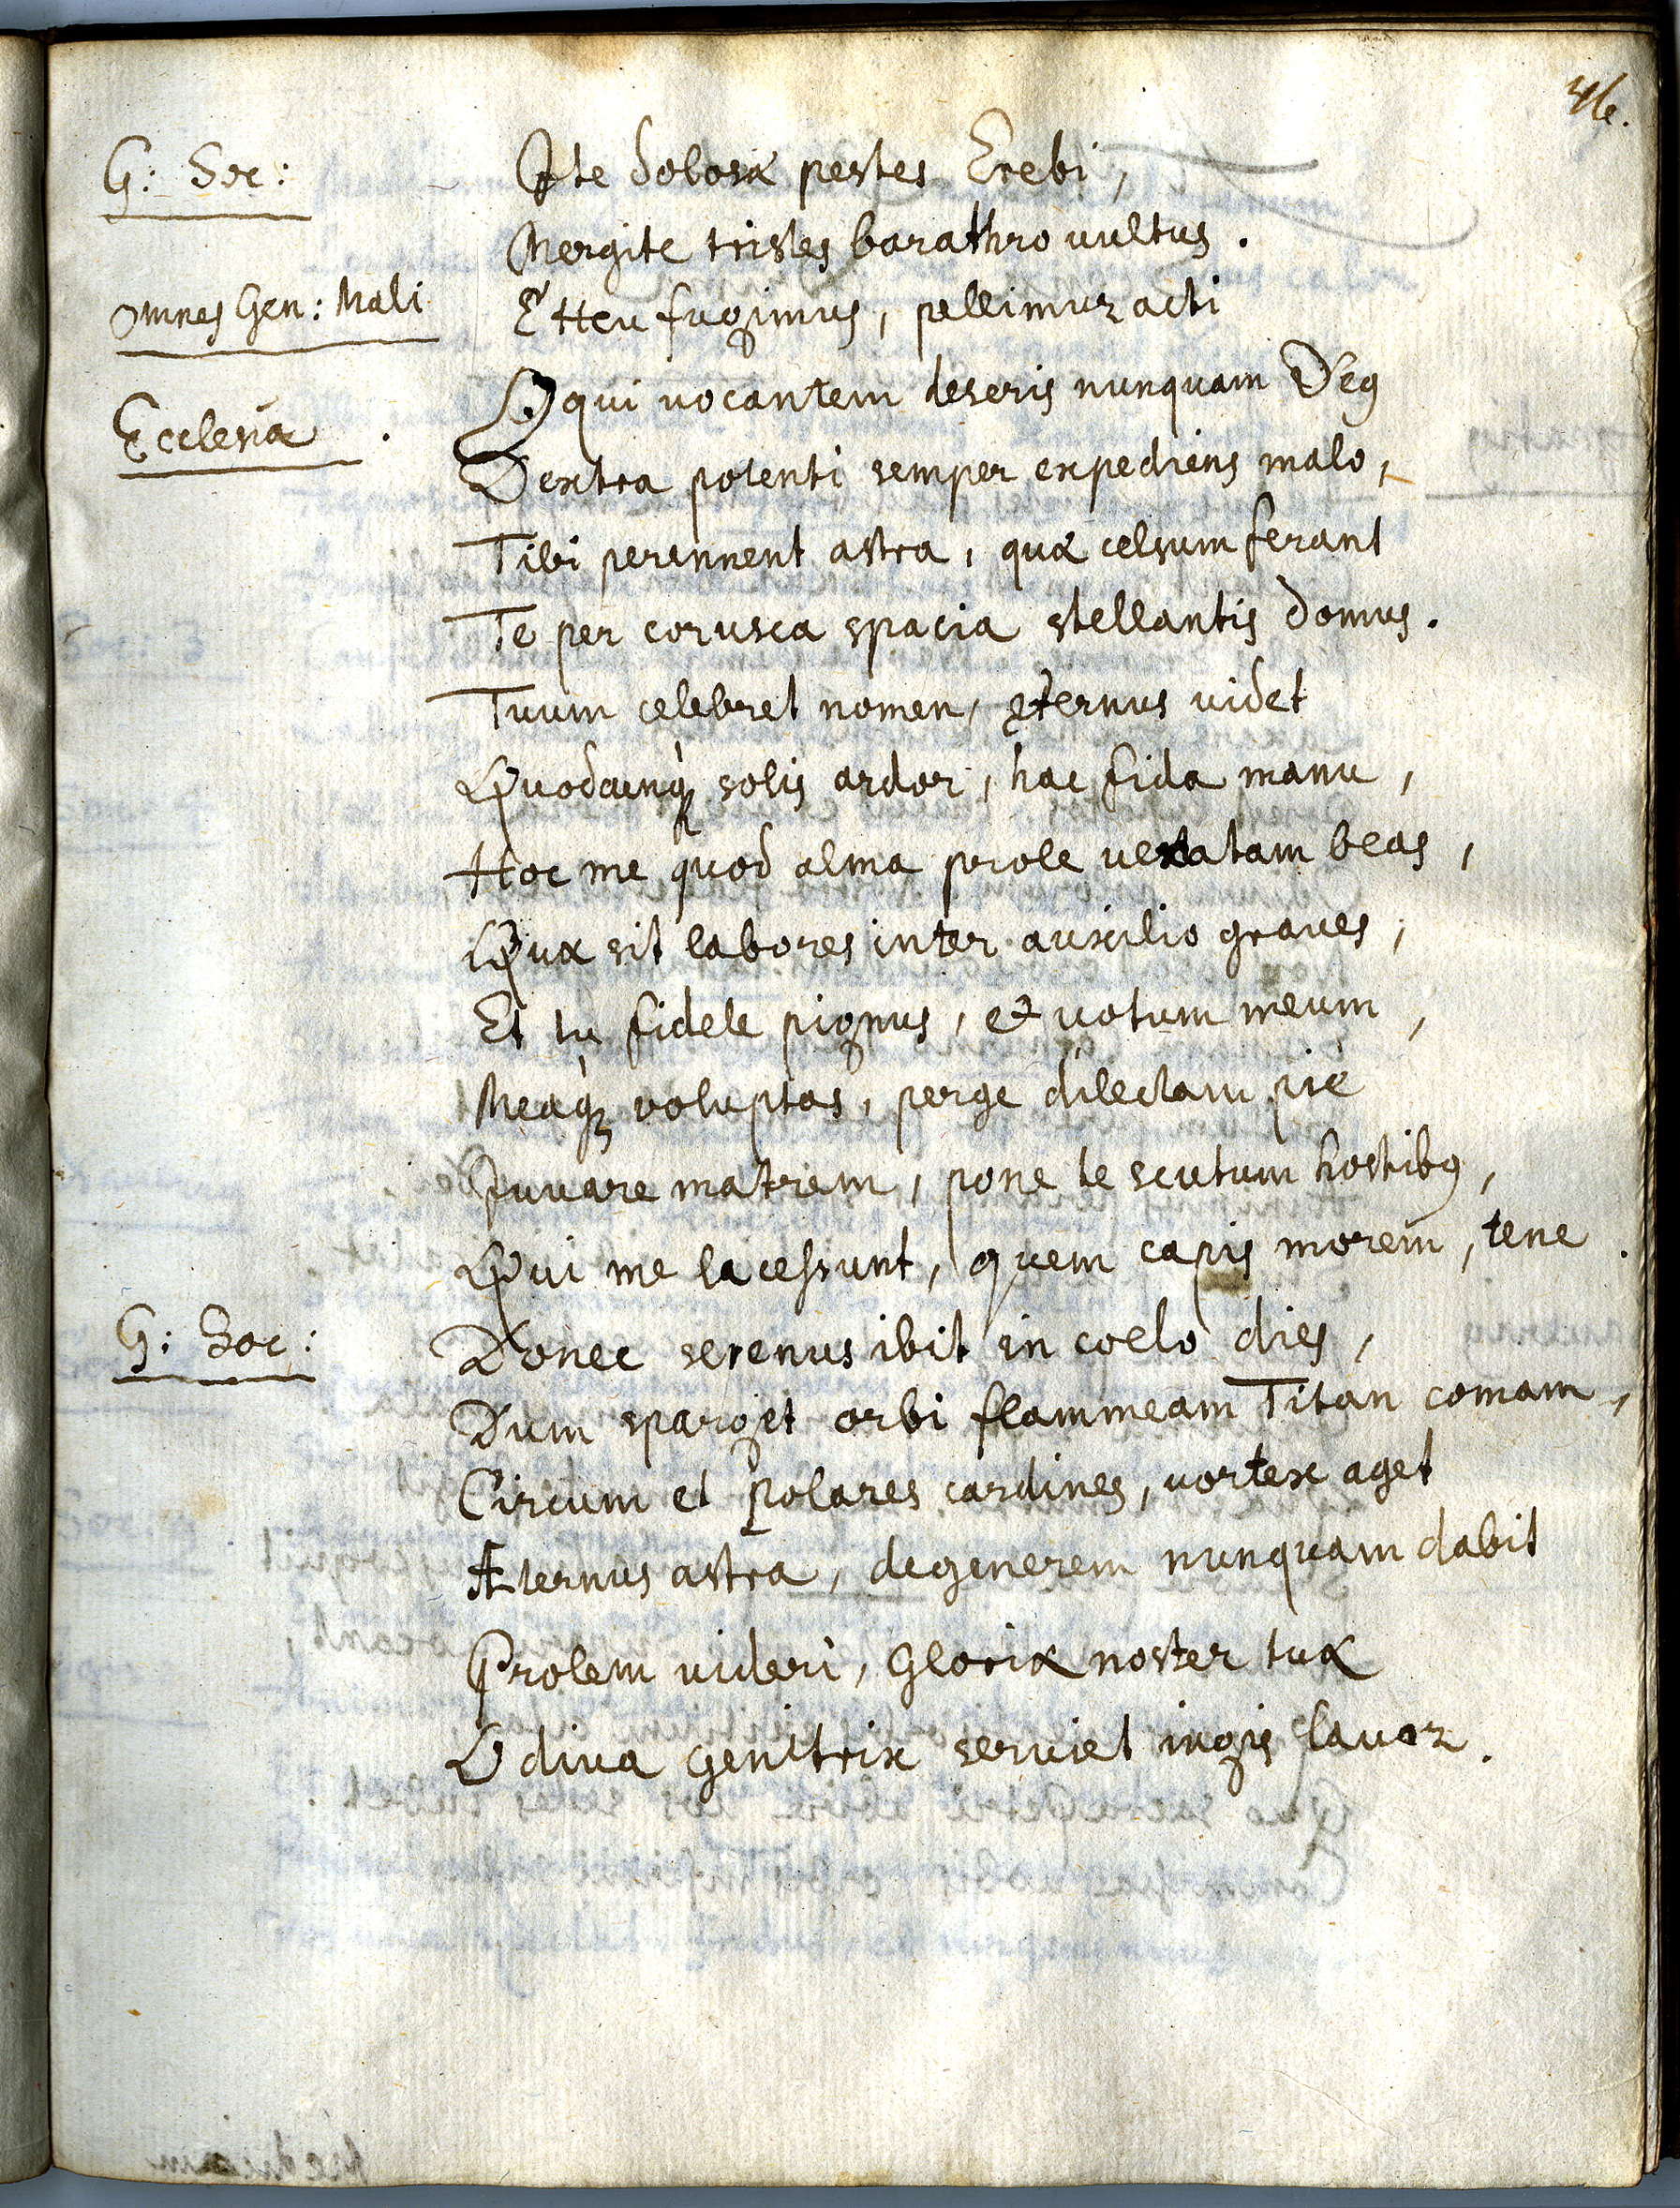 46.
G: Soc: Ite dolosæ pestes Erebi,
Mergite tristes barathro vultus.
omnes Gen: Mali Heu fugimus, pellimur acti
Ecclesia. O qui vocantem deseris nunquam Deus
Dextra potenti semper expediens malo,
Tibi perennent astra, quæ celsum ferant
Te per corusca spacia stellantis domus.
Tuum celebret nomen, æternus videt
Quodcunq solis ardor, hac fida manu,
Hoc me quod alma prole vexatam beas,
Quæ sit labores inter auxilio graves,
Et tu fidele pignus, et votum meum,
Meaq voluptas, perge dilectam piè
Iuvare matrem, pone te scutum hostibus,
Qui me lacessunt, quem capis morem, tene.
G: Soc: Donec serenus ibit in coelo dies,
Dum sparget orbi flammeam Titan comam,
Circum et polares cardines, vortex aget
Æternus astra, degenerem nunquam dabit
Prolem videri, Gloriæ noster tuæ
O diva genitrix serviet iugis lavor.